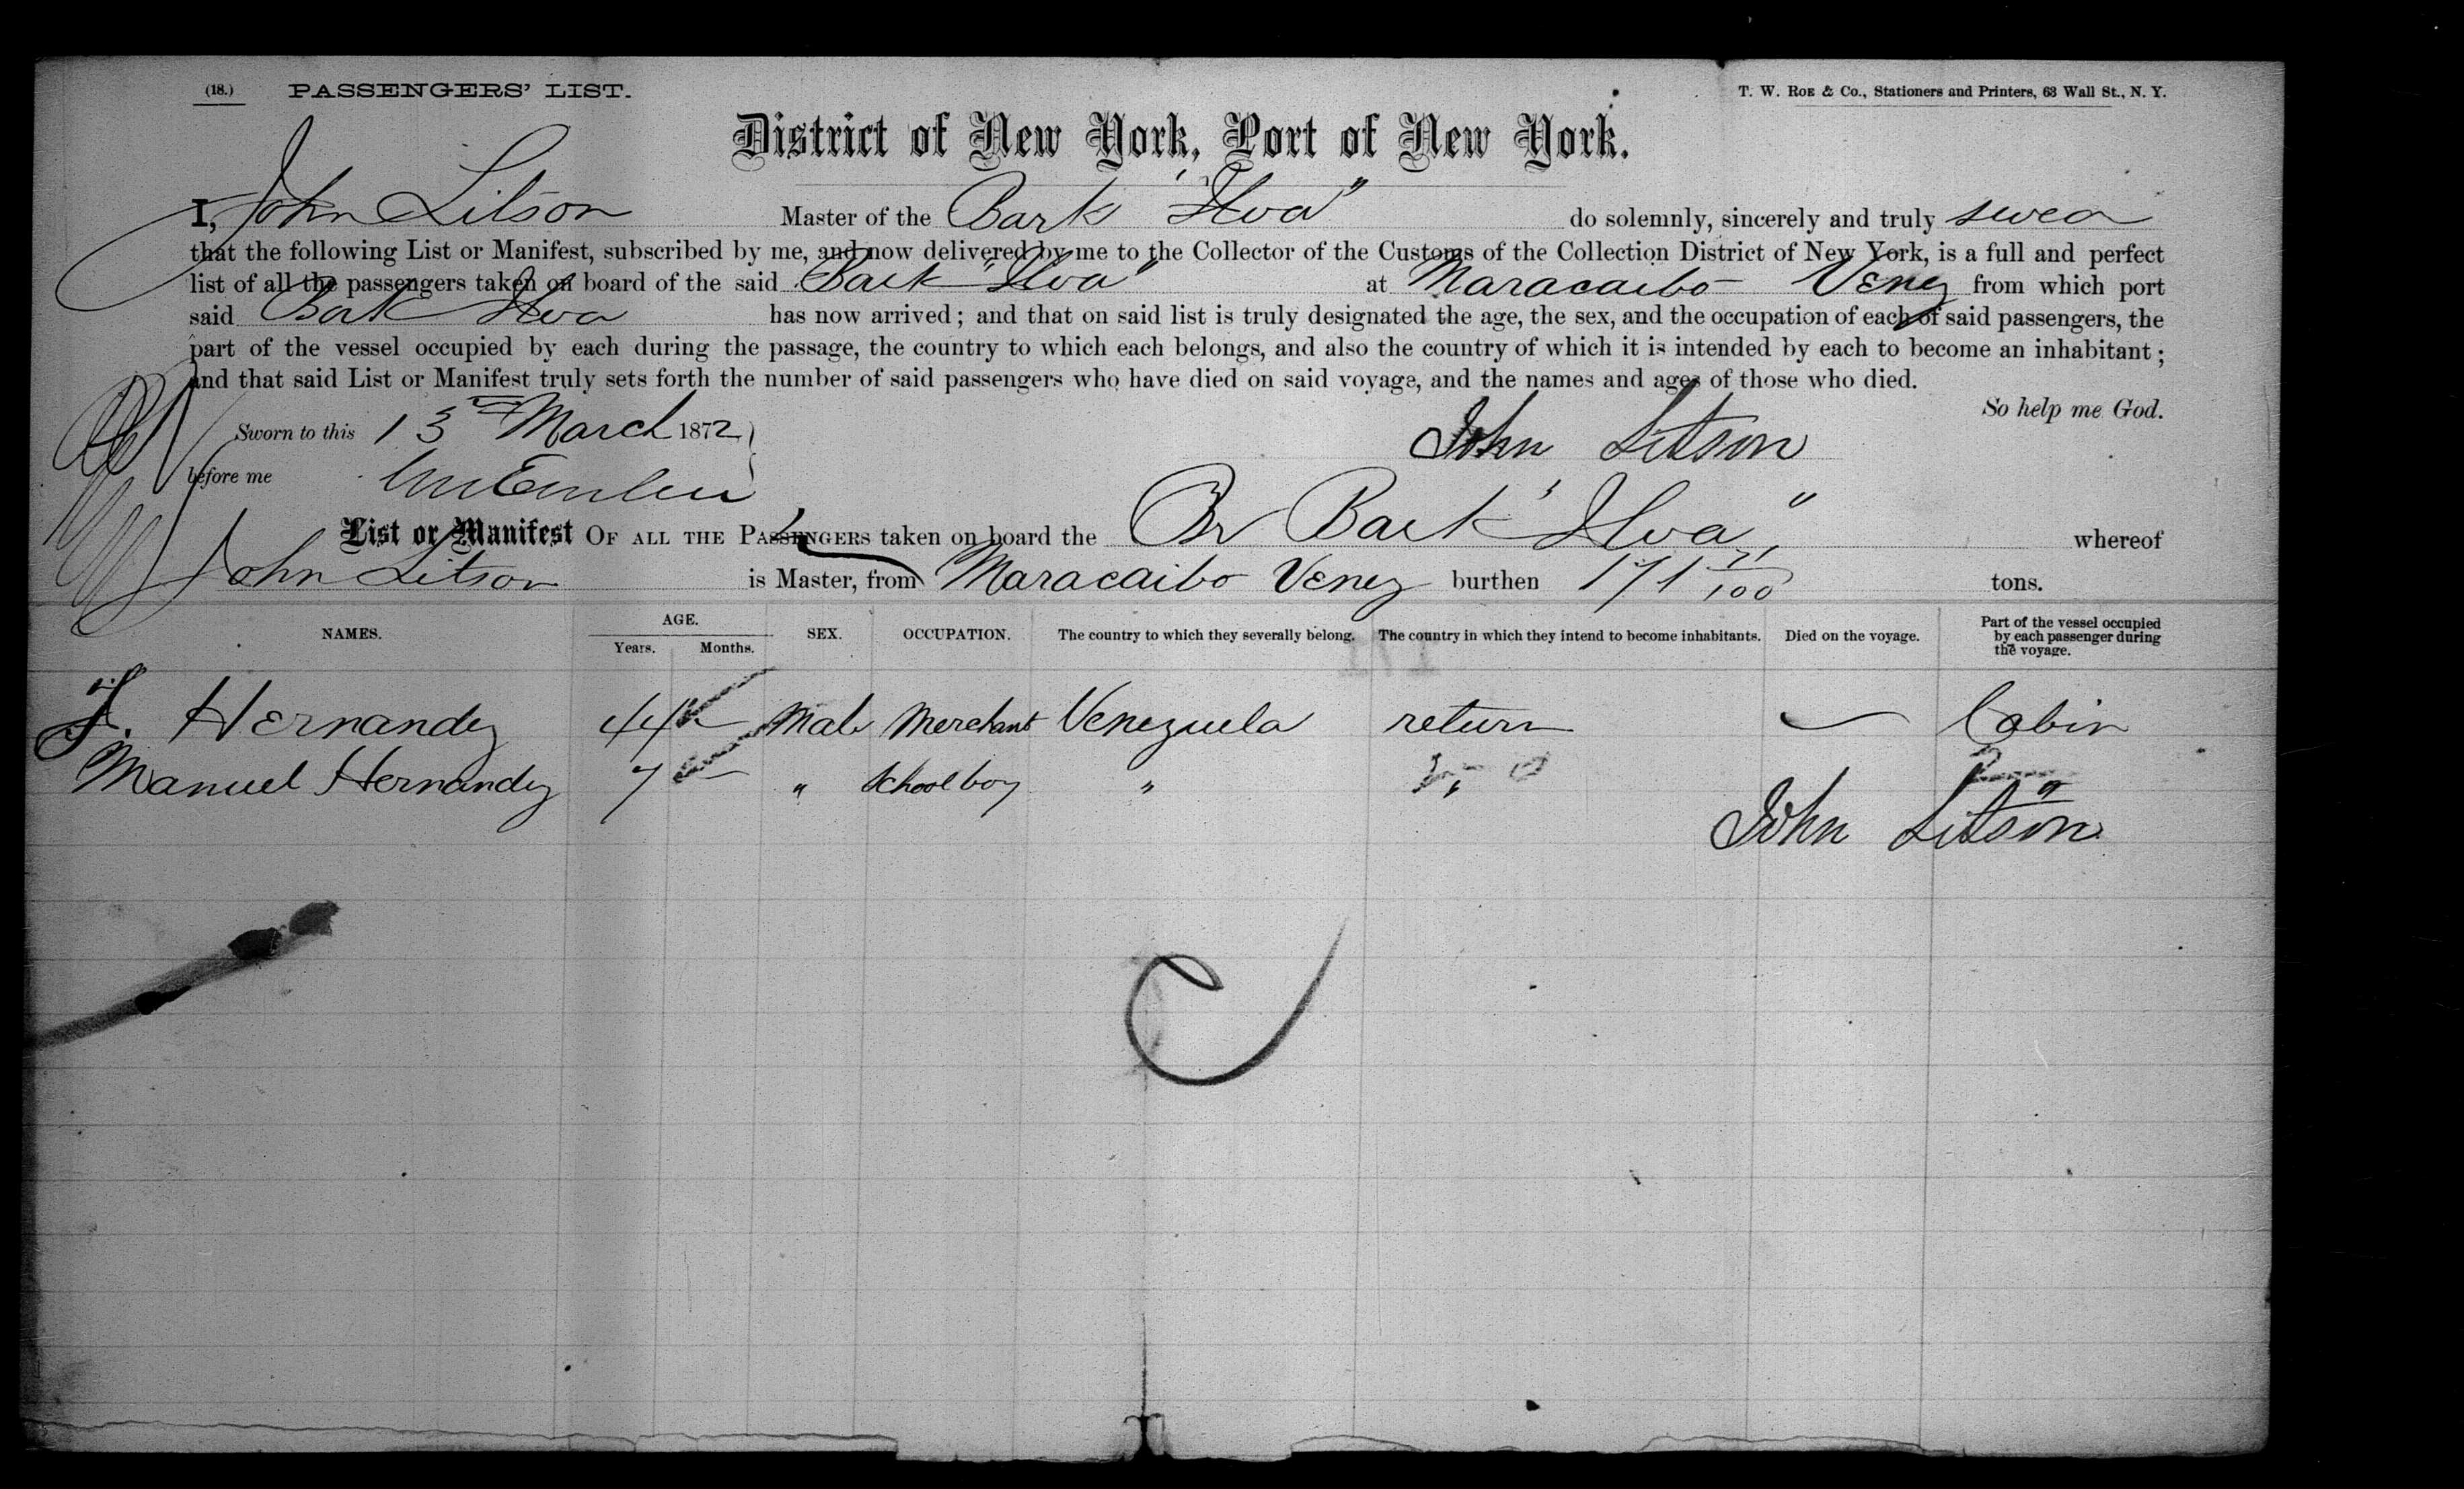 (18.) PASSENGERS' LIST.
T. W. ROE & Co., Stationers and Printers, 63 Wall St., N. Y.
District of New York, Port of New York.
I, John Litson Master of the Bark "Ilva" do solemnly, sincerely and truly swear
that the following List or Manifest, subscribed by me, and now delivered by me to the Collector of the Customs of the Collection District of New York, is a full and perfect
list of all the passengers taken on board of the said Bark "Ilva" at Maracaibo Venez from which port
said Bark Ilva has now arrived; and that on said list is truly designated the age, the sex, and the occupation of each of said passengers, the
part of the vessel occupied by each during the passage, the country to which each belongs, and also the country of which it is intended by each to become an inhabitant;
and that said List or Manifest truly sets forth the number of said passengers who have died on said voyage, and the names and ages of those who died.
So help me God.
Sworn to this 13th March 1872
John Litson
before me
List or Manifest OF ALL THE PASSENGERS taken on board the Br Bark "Ilva" whereof
John Litson is Master, from Maracaibo Venez burthen 171 71/100 tons.
NAMES. AGE. Years. Months. SEX. OCCUPATION. The country to which they severally belong. The country in which they intend to become inhabitants. Died on the voyage. Part of the vessel occupied by each passenger during the voyage.
J. Hernandez 44 Male Merchant Venezuela return — Cabin
Manuel Hernandez 7 — " School boy " " "
John Litson